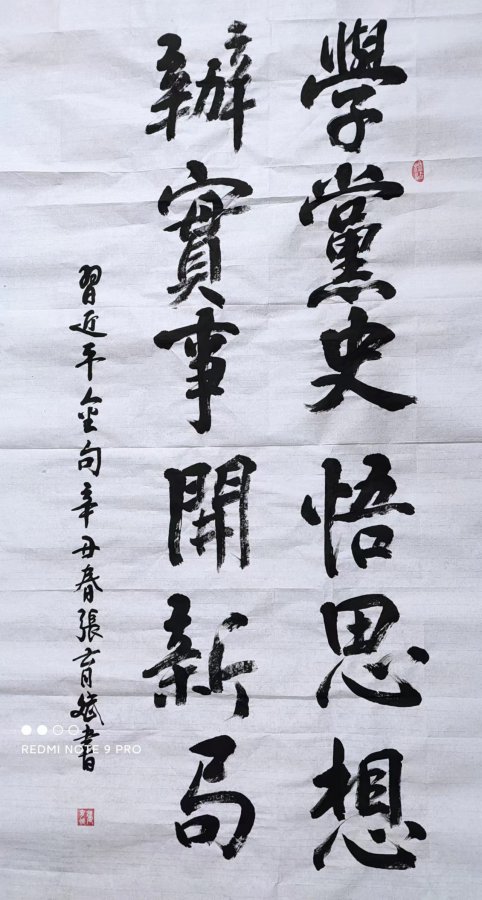 學黨史悟思想
辦實事開新局
習近平金句辛丑春張育斌書
REDMI NOTE 9 PRO